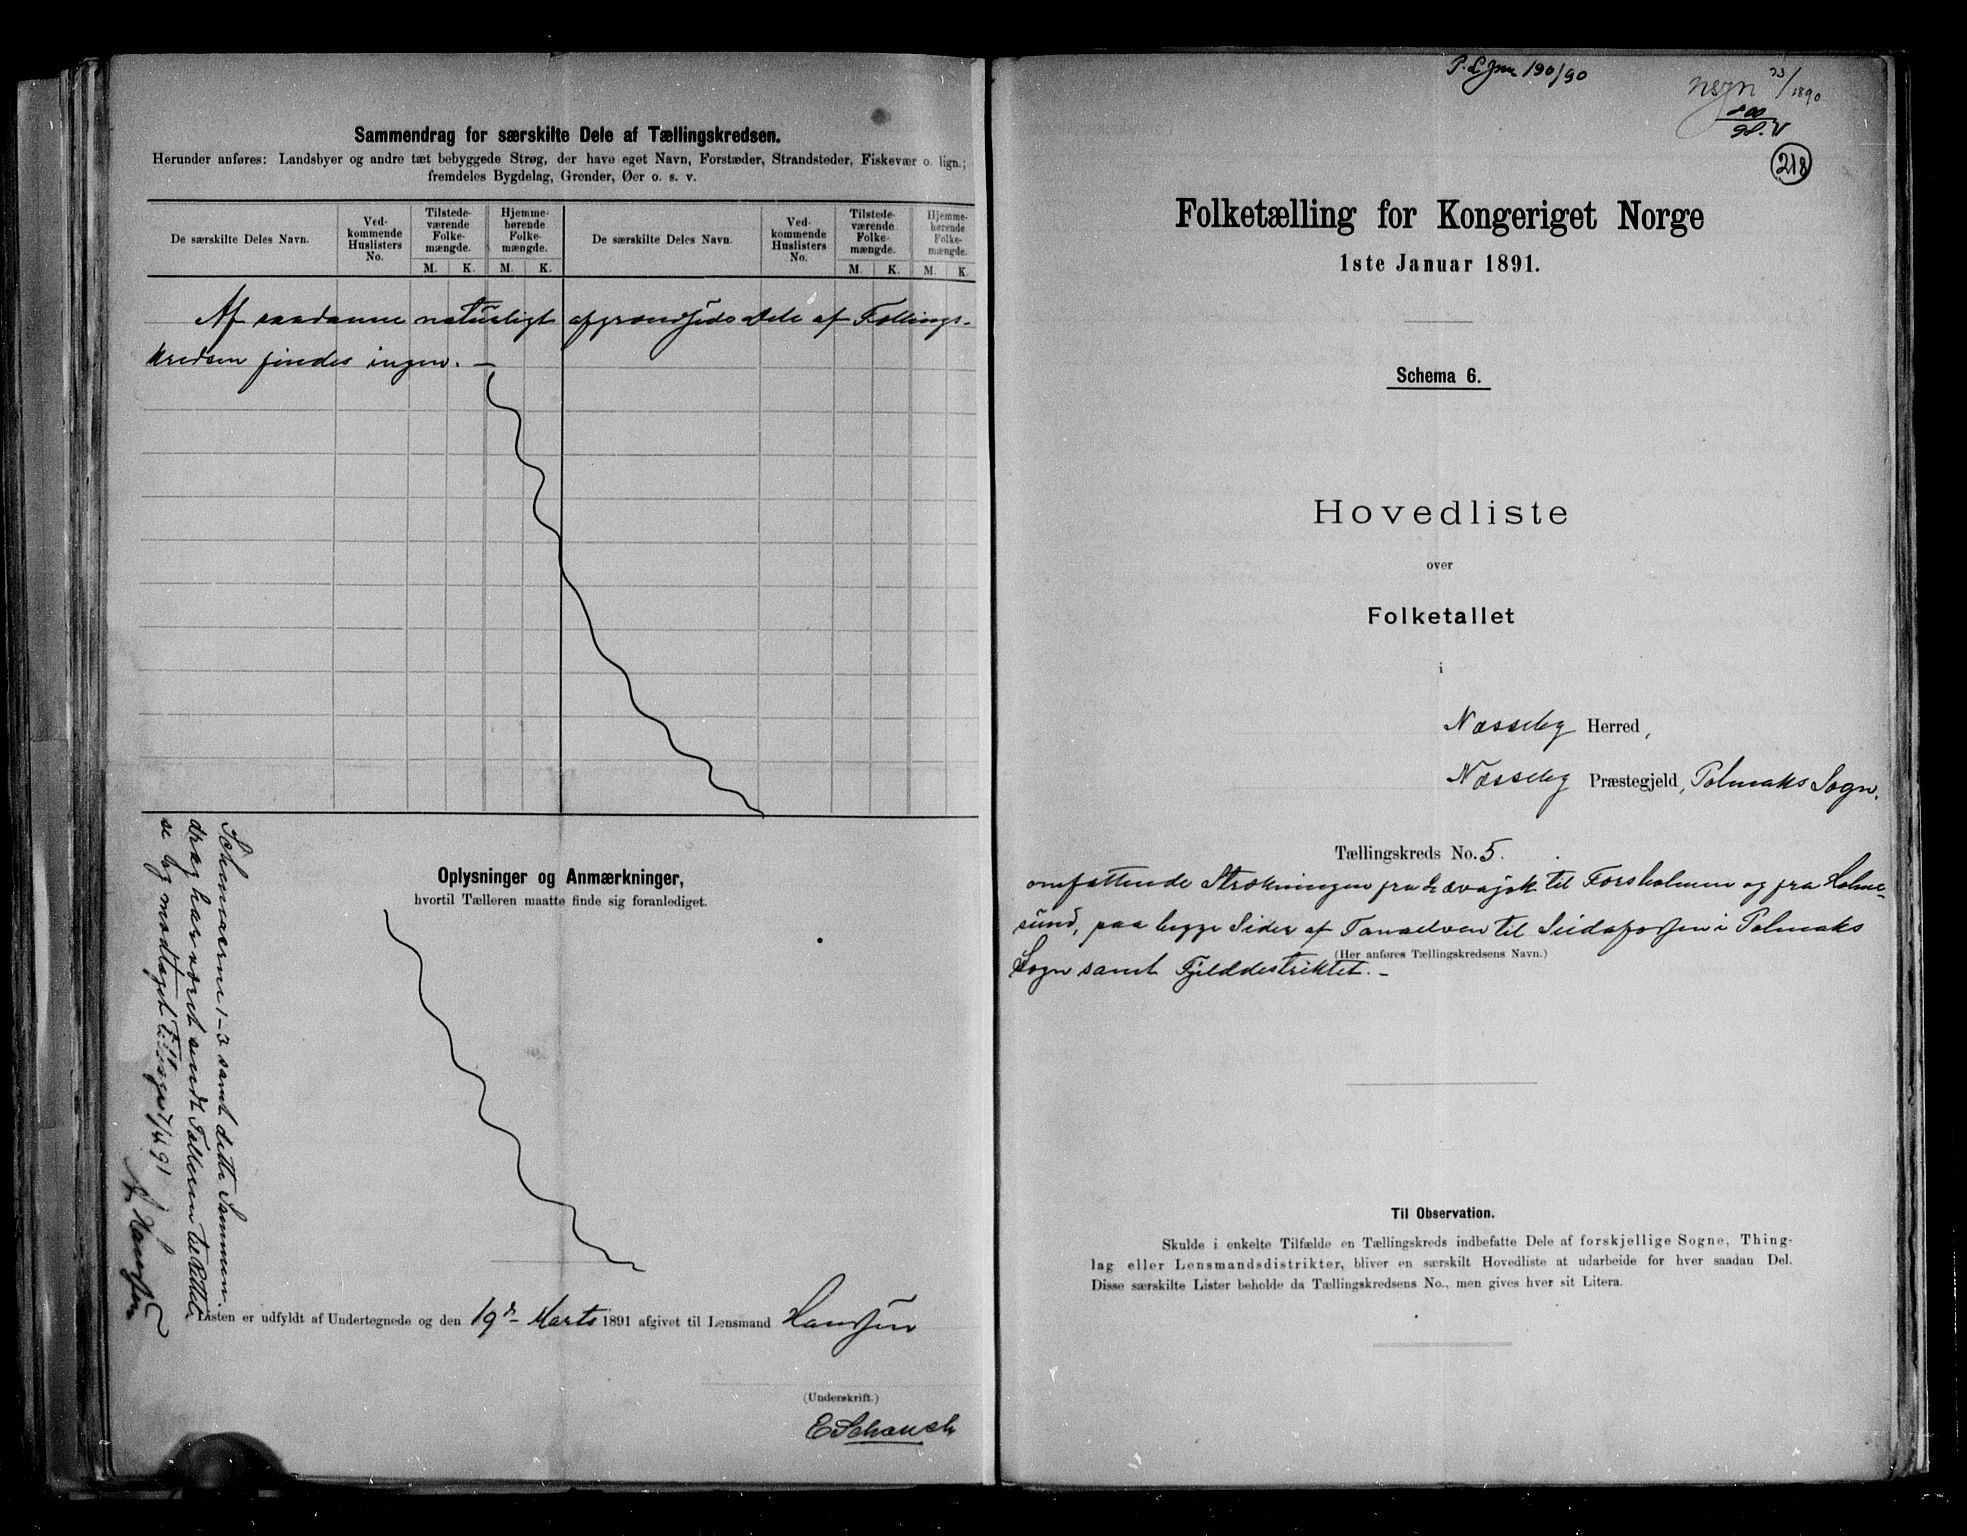 Sammendrag for særskilte Dele af Tællingskredsen.
Herunder anføres: Landsbyer og andre tæt bebyggede Strøg, der have eget Navn, Forstæder, Strandsteder, Fiskevær o. lign.;
fremdeles Bygdelag, Grender, Øer o. s. v.
De særskilte Deles Navn.
Ved-
kommende
Huslisters
No.
Tilstede-
værende
Folke-
mængde.
Hjemme-
hørende
Folke-
mængde.
De særskilte Deles Navn.
Ved-
kommende
Huslisters
No.
Tilstede-
værende
Folke-
mængde.
Hjemme-
hørende
Folke-
mængde.
M. K. M. K. M. K. M. K.
Af saadanne naturligt afgrændsede Dele af Tællings-
kredsen findes ingen. —
Oplysninger og Anmærkninger,
hvortil Tælleren maatte finde sig foranlediget.
Schemaerne 1-3 samt dette Sammen-
drag har været sendt Tælleren til Rettel-
se og modtaget tilbage 7/4 91
Hansen
Listen er udfyldt af Undertegnede og den 19de Marts 1891 afgivet til Lensmand Hansen
(Underskrift.)
E Schanch
P. L. Jnr 190/90
23/1890
218
Folketælling for Kongeriget Norge
1ste Januar 1891.
Schema 6.
Hovedliste
over
Folketallet
i
Næsseby Herred,
Næsseby Præstegjeld, Polmaks Sogn.
Tællingskreds No. 5.
omfattende Strækningen fra Lævajok til Forsholmen og fra Holme-
sund, paa begge Sider af Tanaelven til Seidaforsen i Polmaks
(Her anføres Tællingskredsens Navn.)
Sogn samt Fjelddistriktet. —
Til Observation.
Skulde i enkelte Tilfælde en Tællingskreds indbefatte Dele af forskjellige Sogne, Thing-
lag eller Lensmandsdistrikter, bliver en særskilt Hovedliste at udarbeide for hver saadan Del.
Disse særskilte Lister beholde da Tællingskredsens No., men gives hver sit Litera.